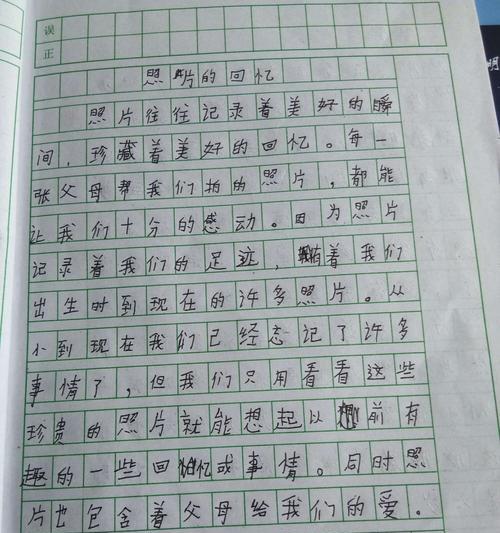 误
正
明
照片的回忆
照片往往记录着美好的瞬
间，珍藏着美好的回忆。每一
张父母帮我们拍的照片，都能
让我们十分的感动。因为照片
记录着我们的足迹，有着我们
出生时到现在的许多照片。从
小到现在我们已经忘记了许多
事情了，但我们只用看看这些
珍贵的照片就能想起以前有
趣的一些回忆或事情。同时照
片也包含着父母给我们的爱。